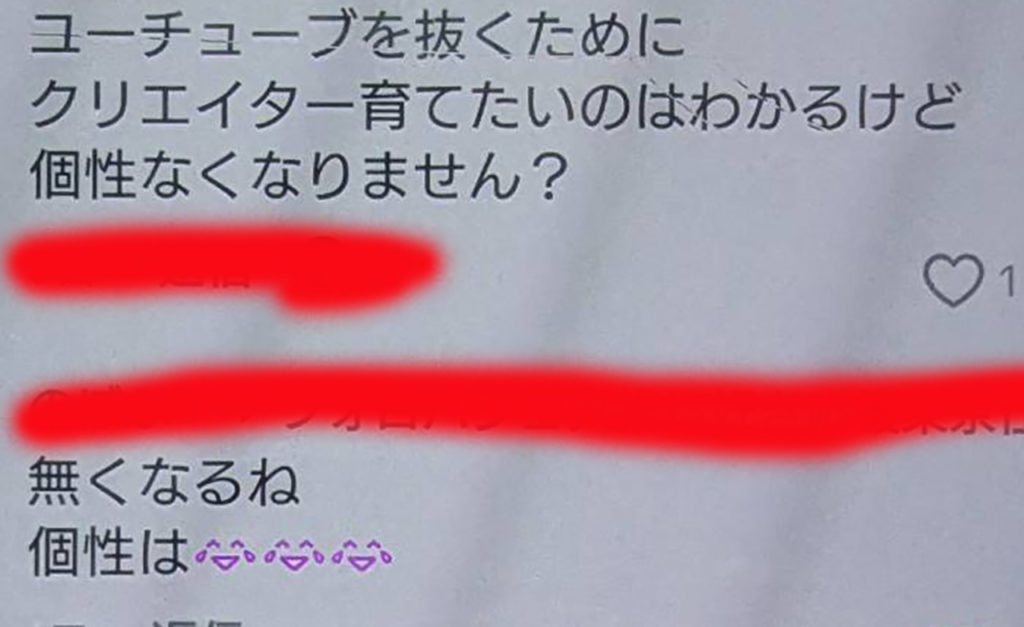 ユーチューブを抜くために
クリエイター育てたいのはわかるけど
個性なくなりません？
1
無くなるね
個性は😂😂😂
返信